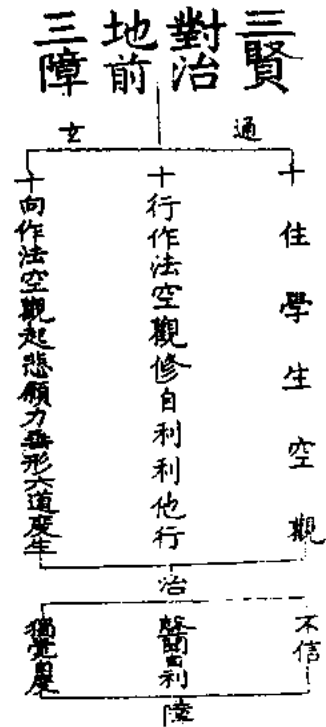 三賢
對治
地前
三障
通
玄
十住學生空觀
十行作法空觀修自利利他行
十向作法空觀起悲願力垂形六道度生
治
不信
聲聞自利
獨覺自度
障